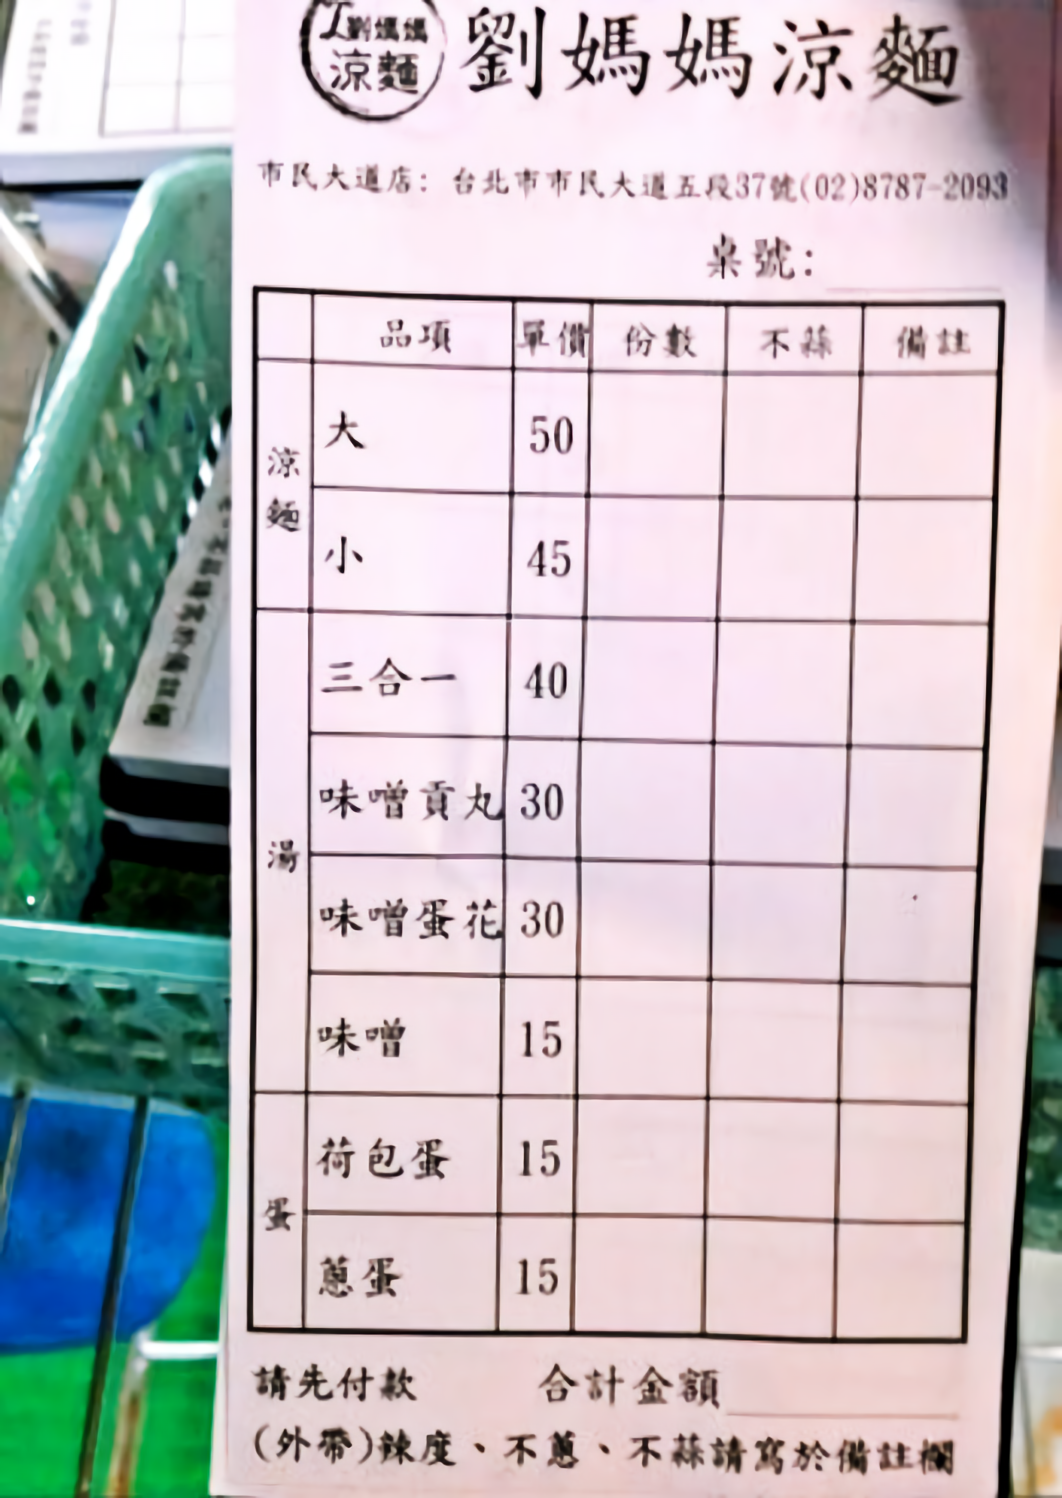 劉媽媽
涼麵
劉媽媽涼麵
市民大道店: 台北市市民大道五段37號(02)8787-2093
桌號:
品項 單價 份數 不蒜 備註
涼麵
大 50
小 45
湯
三合一 40
味噌貢丸 30
味噌蛋花 30
味噌 15
蛋
荷包蛋 15
蔥蛋 15
請先付款 合計金額
(外帶)辣度、不蔥、不蒜請寫於備註欄